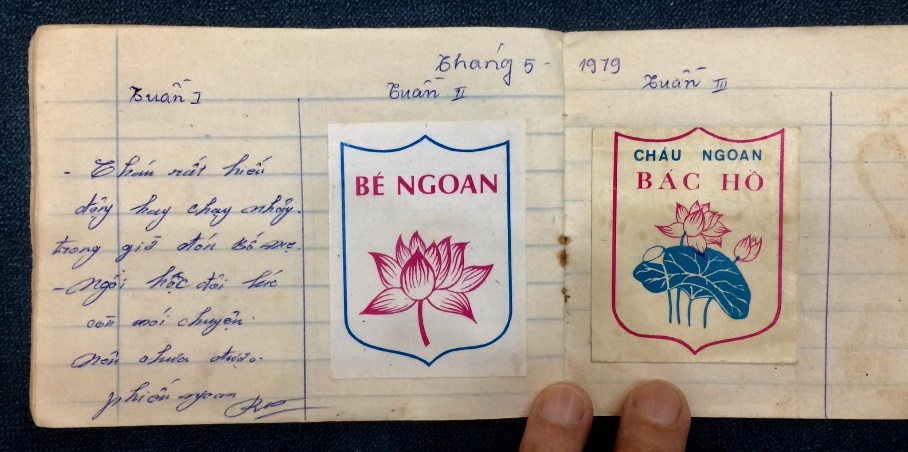 Tháng 5 - 1979
Tuần I
Tuần II
Tuần III
- Cháu rất hiếu
động hay chạy nhảy.
trong giờ đón bố mẹ.
- Ngồi học đôi lúc
còn nói chuyện.
nên chưa được
phiếu ngoan
BÉ NGOAN
CHÁU NGOAN
BÁC HỒ